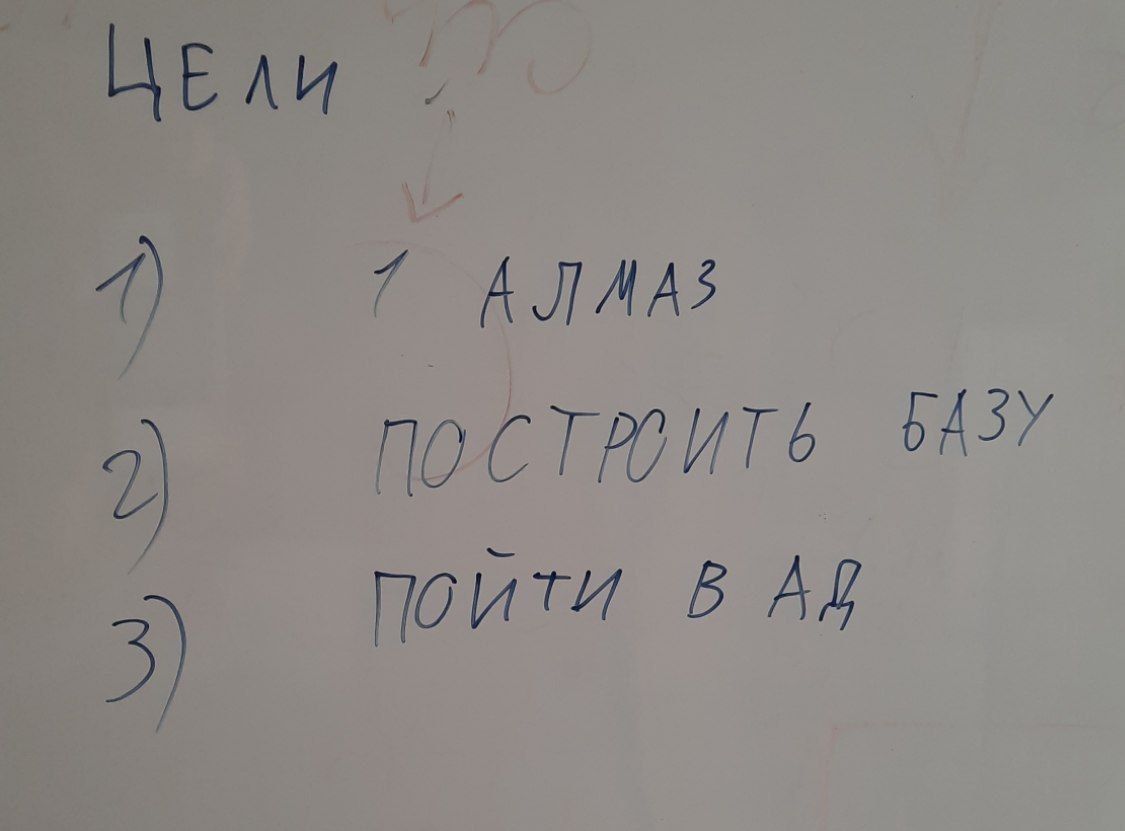 ЦЕЛИ
1) 1 АЛМАЗ
2) ПОСТРОИТЬ БАЗУ
3) ПОЙТИ В АД